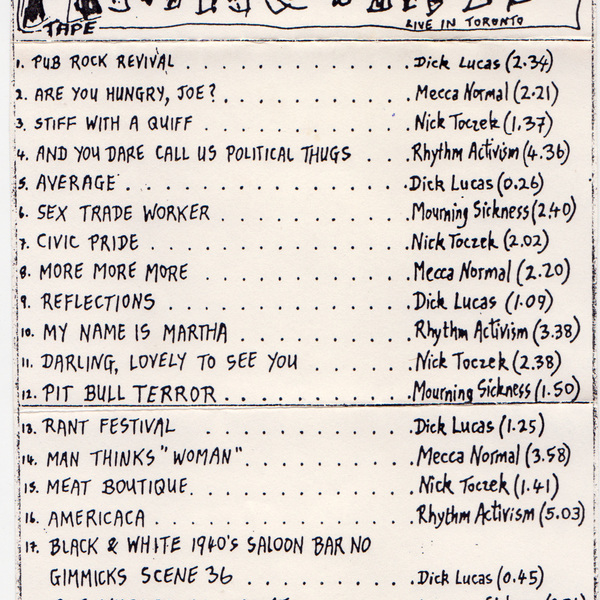 TAPE
LIVE IN TORONTO
1. PUB ROCK REVIVAL . . . . . . . . . . . . Dick Lucas (2.34)
2. ARE YOU HUNGRY, JOE? . . . . . . . . . . Mecca Normal (2.21)
3. STIFF WITH A QUIFF . . . . . . . . . . . Nick Toczek (1.37)
4. AND YOU DARE CALL US POLITICAL THUGS . . . Rhythm Activism (4.36)
5. AVERAGE . . . . . . . . . . . . . . . . Dick Lucas (0.26)
6. SEX TRADE WORKER . . . . . . . . . . . Mourning Sickness (2.40)
7. CIVIC PRIDE . . . . . . . . . . . . . . Nick Toczek (2.02)
8. MORE MORE MORE . . . . . . . . . . . . Mecca Normal (2.20)
9. REFLECTIONS . . . . . . . . . . . . . . Dick Lucas (1.09)
10. MY NAME IS MARTHA . . . . . . . . . . Rhythm Activism (3.38)
11. DARLING, LOVELY TO SEE YOU . . . . . . Nick Toczek (2.38)
12. PIT BULL TERROR . . . . . . . . . . . Mourning Sickness (1.50)
13. RANT FESTIVAL . . . . . . . . . . . . Dick Lucas (1.25)
14. MAN THINKS "WOMAN" . . . . . . . . . . Mecca Normal (3.58)
15. MEAT BOUTIQUE . . . . . . . . . . . . Nick Toczek (1.41)
16. AMERICACA . . . . . . . . . . . . . . Rhythm Activism (5.03)
17. BLACK & WHITE 1940'S SALOON BAR NO
GIMMICKS SCENE 36 . . . . . . . . . . Dick Lucas (0.45)